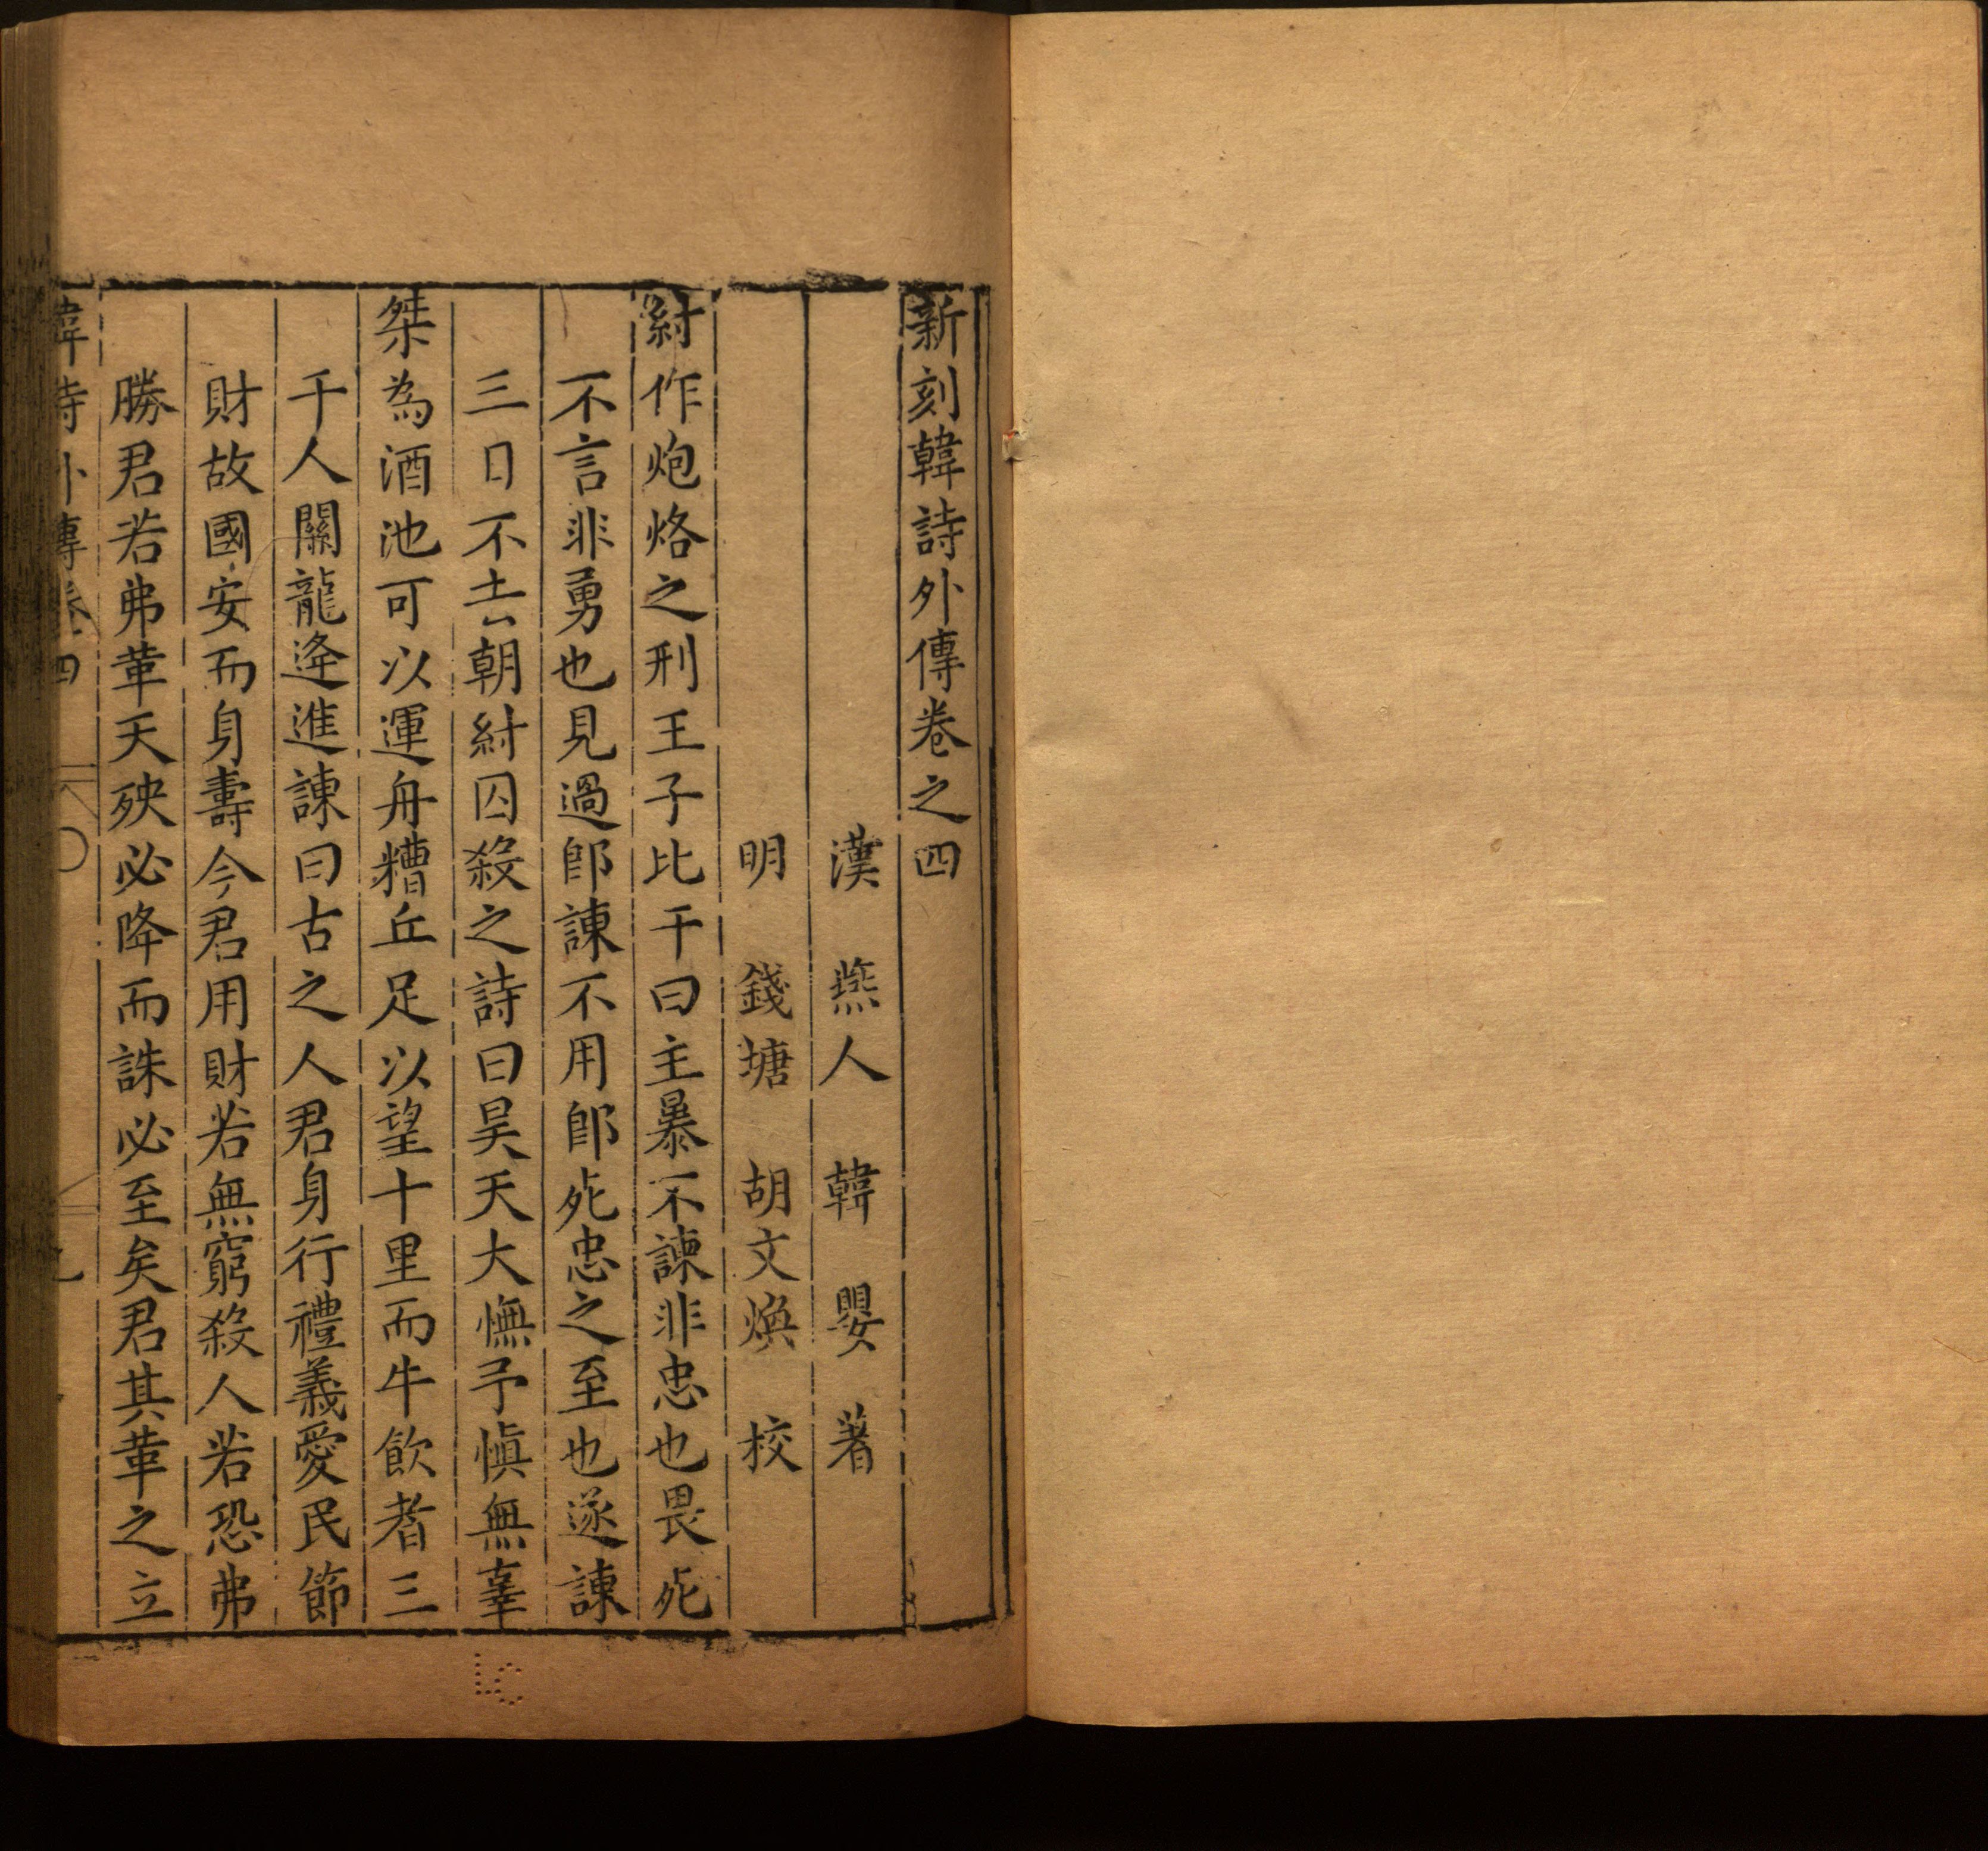 新刻韓詩外傳卷之四
漢 燕人 韓 嬰 著
明 錢塘 胡文煥 校
紂作炮烙之刑王子比干曰主暴不諫非忠也畏死
不言非勇也見過卽諫不用卽死忠之至也遂諫
三日不去朝紂囚殺之詩曰昊天大憮予愼無辜
桀為酒池可以運舟糟丘足以望十里而牛飲者三
千人關龍逄進諫曰古之人君身行禮義愛民節
財故國安而身壽今君用財若無窮殺人若恐弗
勝君若弗革天殃必降而誅必至矣君其革之立
韓詩外傳卷四
LC